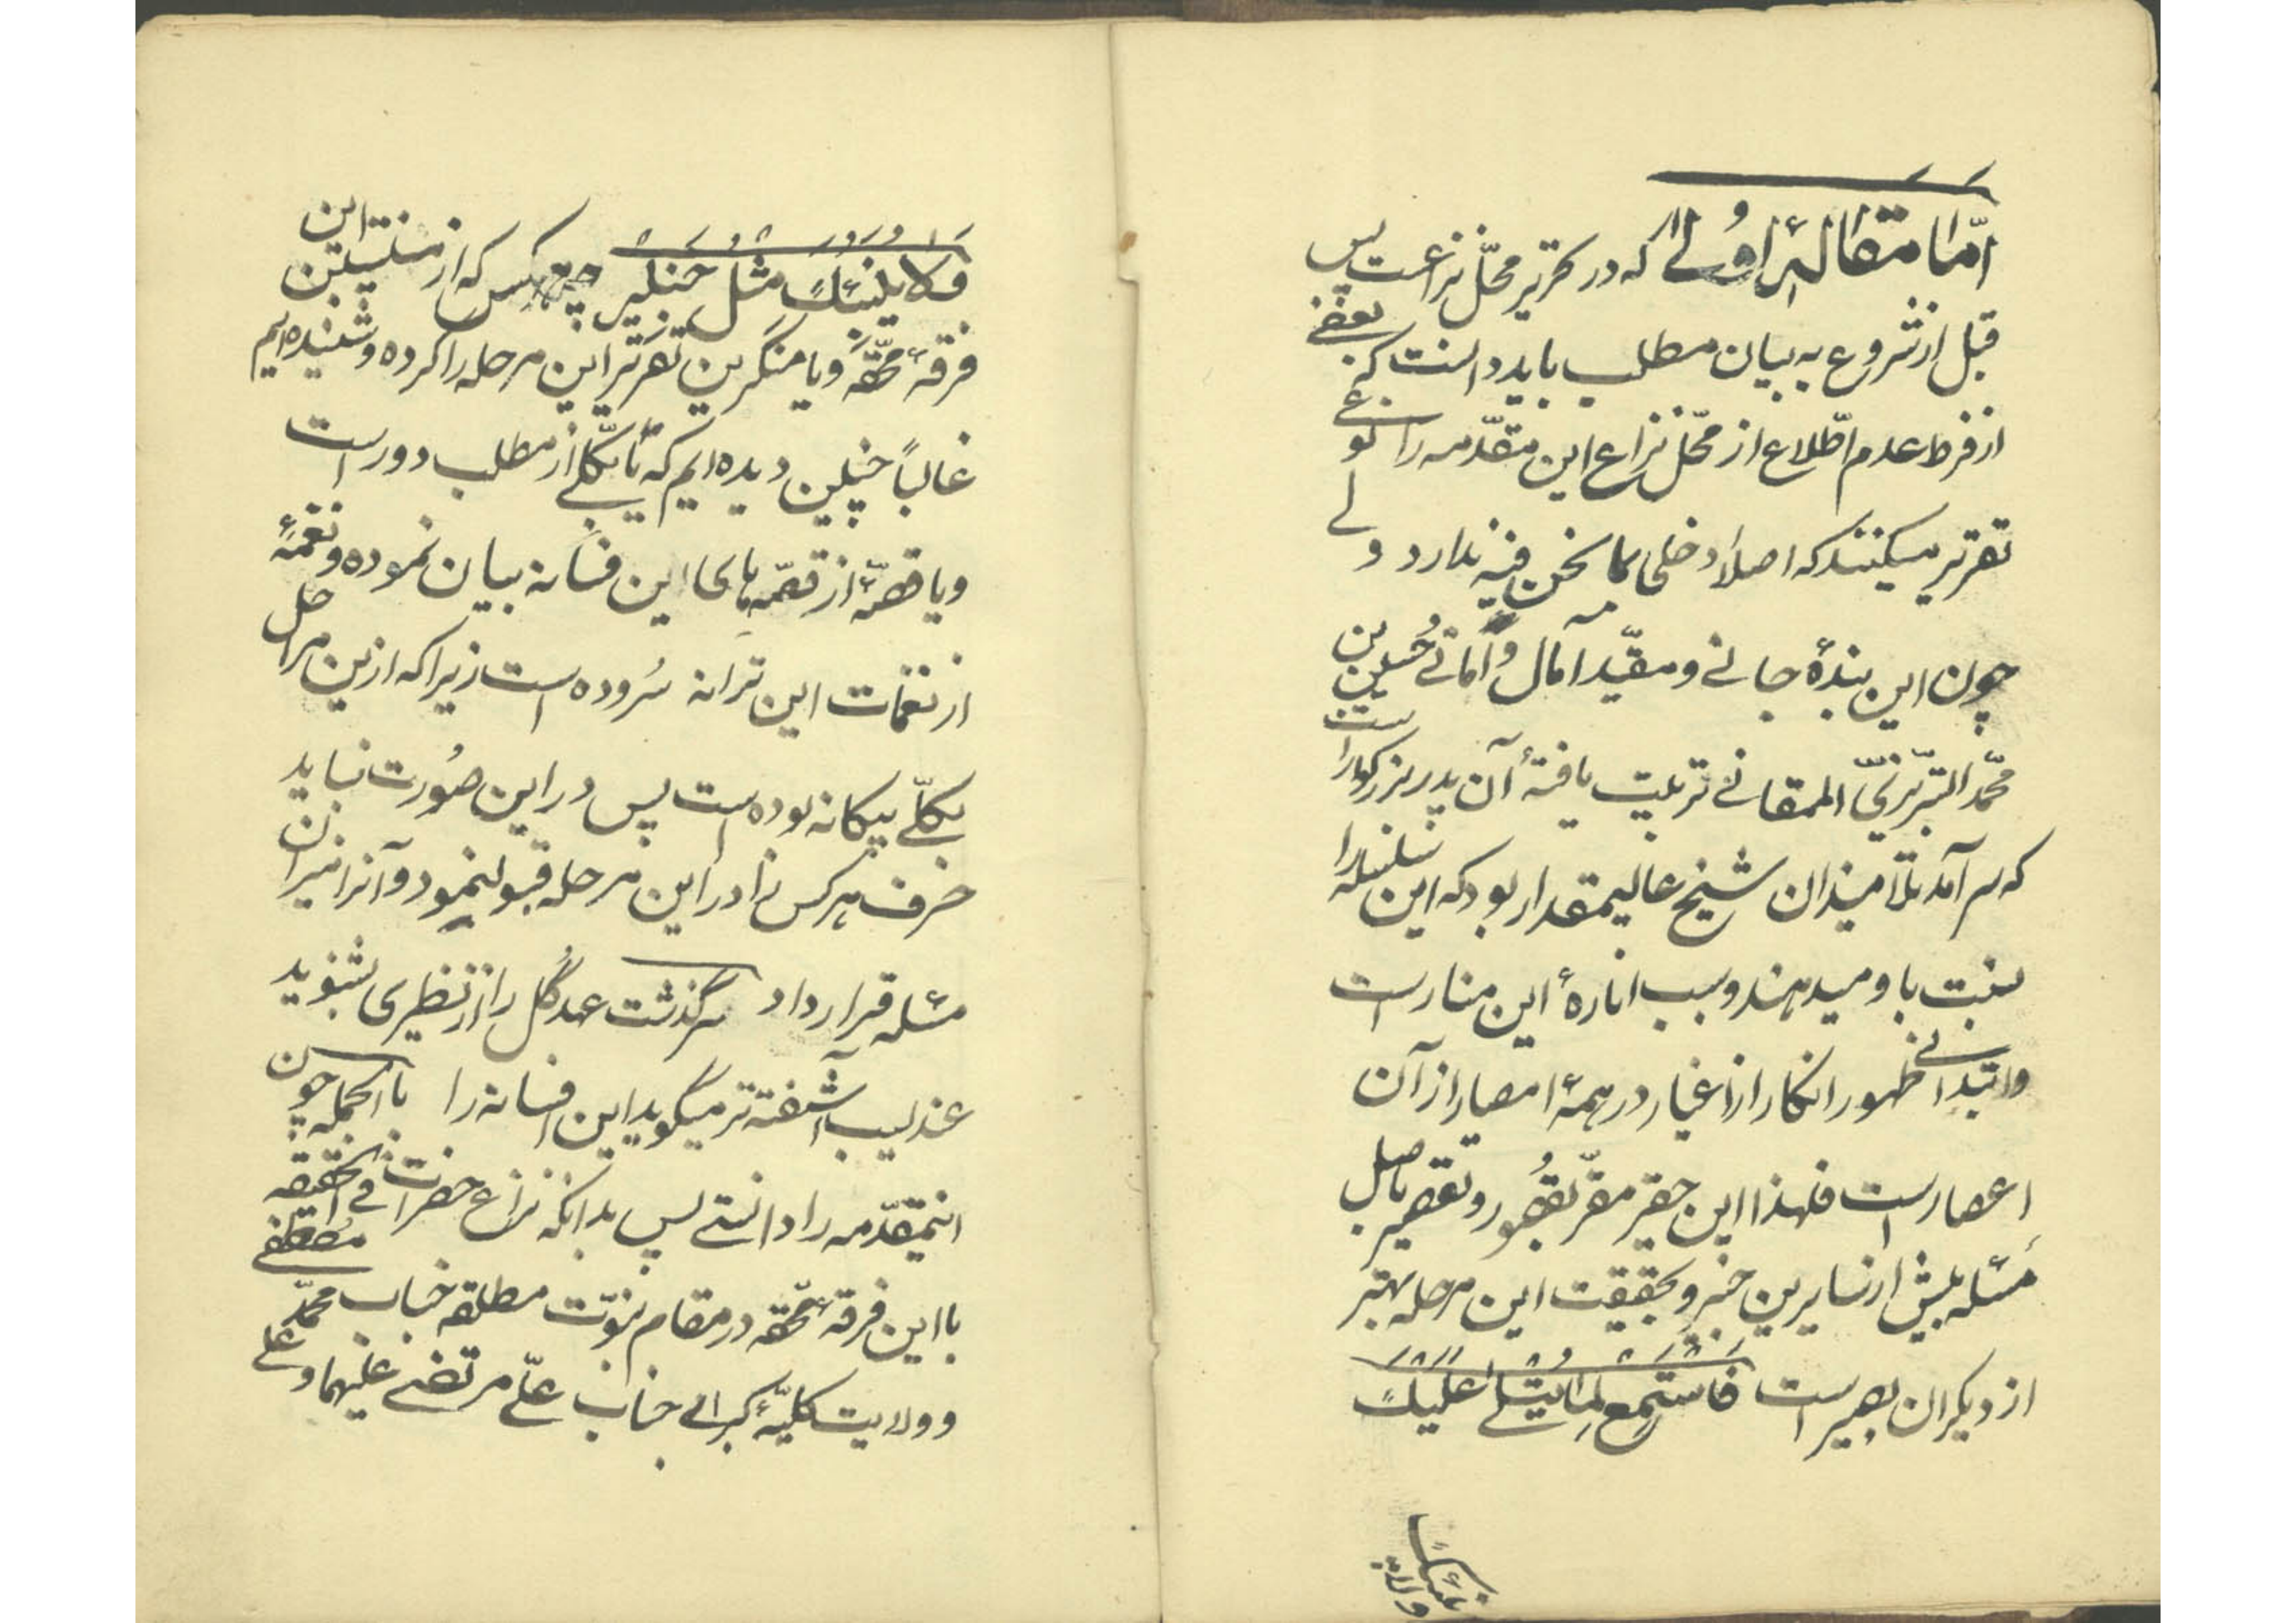 امّا مقالهٔ اولی که در تحریر محلّ نزاعست پس
قبل از شروع به بیان مطلب باید دانست که بعضی
از فرط عدم اطّلاع از محلّ نزاع این مقدّمه را نوعی
تقریر میکنند که اصلاً دخلی بما نحن فیه ندارد ولی
چون این بندهٔ جانی و مقیّد آمال و امانی حسین بن
محمّد التبریزیّ الممقانی تربیت یافتهٔ آن پدر بزرگوار است
که سرآمد تلامیذان شیخ عالیمقدار بود که این سلسله را
نسبت باو میدهند و سبب انارهٔ این منار است
و ابتدای ظهور انکار از اغیار در همهٔ امصار از آن
اعصار است فلهذا این حقیر مقرّ بقصور و تقصیر باصل
مسئله بیش از سایرین خبیر و بحقیقت این مرحله بهتر
از دیکران بصیر است فاستمع لما یتلی علیک
ولا ینبئک
ولا ینبئک مثل خبیر چه هر کس که از منتسبین این
فرقهٔ محقّه و یا منکرین تقریر این مرحله را کرده و شنیده ایم
غالباً چنین دیده ایم که یا بکلّی از مطلب دور است
و یا قصّهٔ از قصّه های این فسانه بیان نموده و نغمهٔ
از نغمات این ترانه سُروده است زیرا که از این مراحل
بکلّی بیکانه بوده است پس در این صورت نباید
حرف هر کس را در این مرحله قبول نمود و آنرا میزان
مسئله قرار داد سرگذشت عهد گل را از نظیری بشنوید
عندلیب آشفته تر میگوید این افسانه را باالجمله چون
اینمقدّمه را دانستی پس بدانکه نزاع حضرات فی الحقیقه
با این فرقهٔ محقّه در مقام نبوّت مطلقه جناب محمّد مصطفی
و ولایت کلیّهٔ کبرای جناب علّی مرتضی علیهما و علی